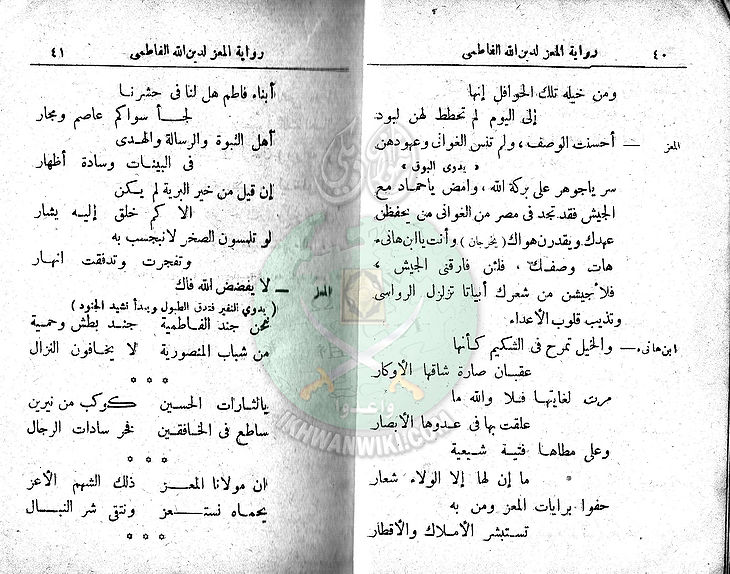 ٤٠ رواية المعز لدين الله الفاطمى
ومن خيله تلك الحوافل إنها
إلى اليوم لم تحطط لهن لبود
المعز — أحسنت الوصف، ولم تنس الغوانى وعهودهن
« يدوى البوق »
سر ياجوهر على بركة الله، وامض ياحماد مع
الجيش فقد تجد فى مصر من الغوانى من يحفظن
عهدك ويقدرن هواك ( يخرجان ) وأنت يا ابن هانىء
هات وصفك، فلئن فارقنى الجيش
فلأجيشن من شعرك أبياتا تزلزل الرواسى
وتذيب قلوب الأعداء
ابن هانىء — والخيل تمرح فى الشكيم كأنها
عقبان صارة شاقها الأوكار
مرت لغايتها فلا والله ما
علقت بها فى عدوها الأبصار
وعلى مطاها فتية شيعية
ما إن لها إلا الولاء شعار
حفوا برايات المعز ومن به
تستبشر الأملاك والأقطار
رواية المعز لدين الله الفاطمى ٤١
أبناء فاطم هل لنا فى حشرنا
لجأ سواكم عاصم ومجار
أهل النبوة والرسالة والهدى
فى البينات وسادة أظهار
إن قيل من خير البرية لم يكن
الا كم خلق إليه يشار
لو تلمسون الصخر لانبجست به
وتفجرت وتدفقت انهار
المعز — لا يفضض الله فاك
( يدوي النفير فتدق الطبول ويبدأ نشيد الجنود )
نحن جند الفاطمية جند بطش وحمية
من شباب المنصورية لا يخافون النزال
* * *
يالثارات الحسين كوكب من نيرين
ساطع فى الخافقين فخر سادات الرجال
* * *
ان مولانا المعز ذلك الشهم الأعز
بحماه نستعز ونتقى شر النبال
* * *
IKHWANWIKI.COM
وأعدوا